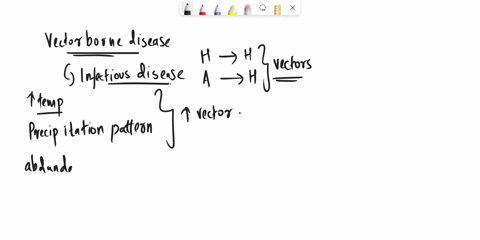 Vectorborne disease
H → H
↳ Infectious disease
A → H
vectors
↑ temp
Precipitation pattern
↑ vector .
abdunde